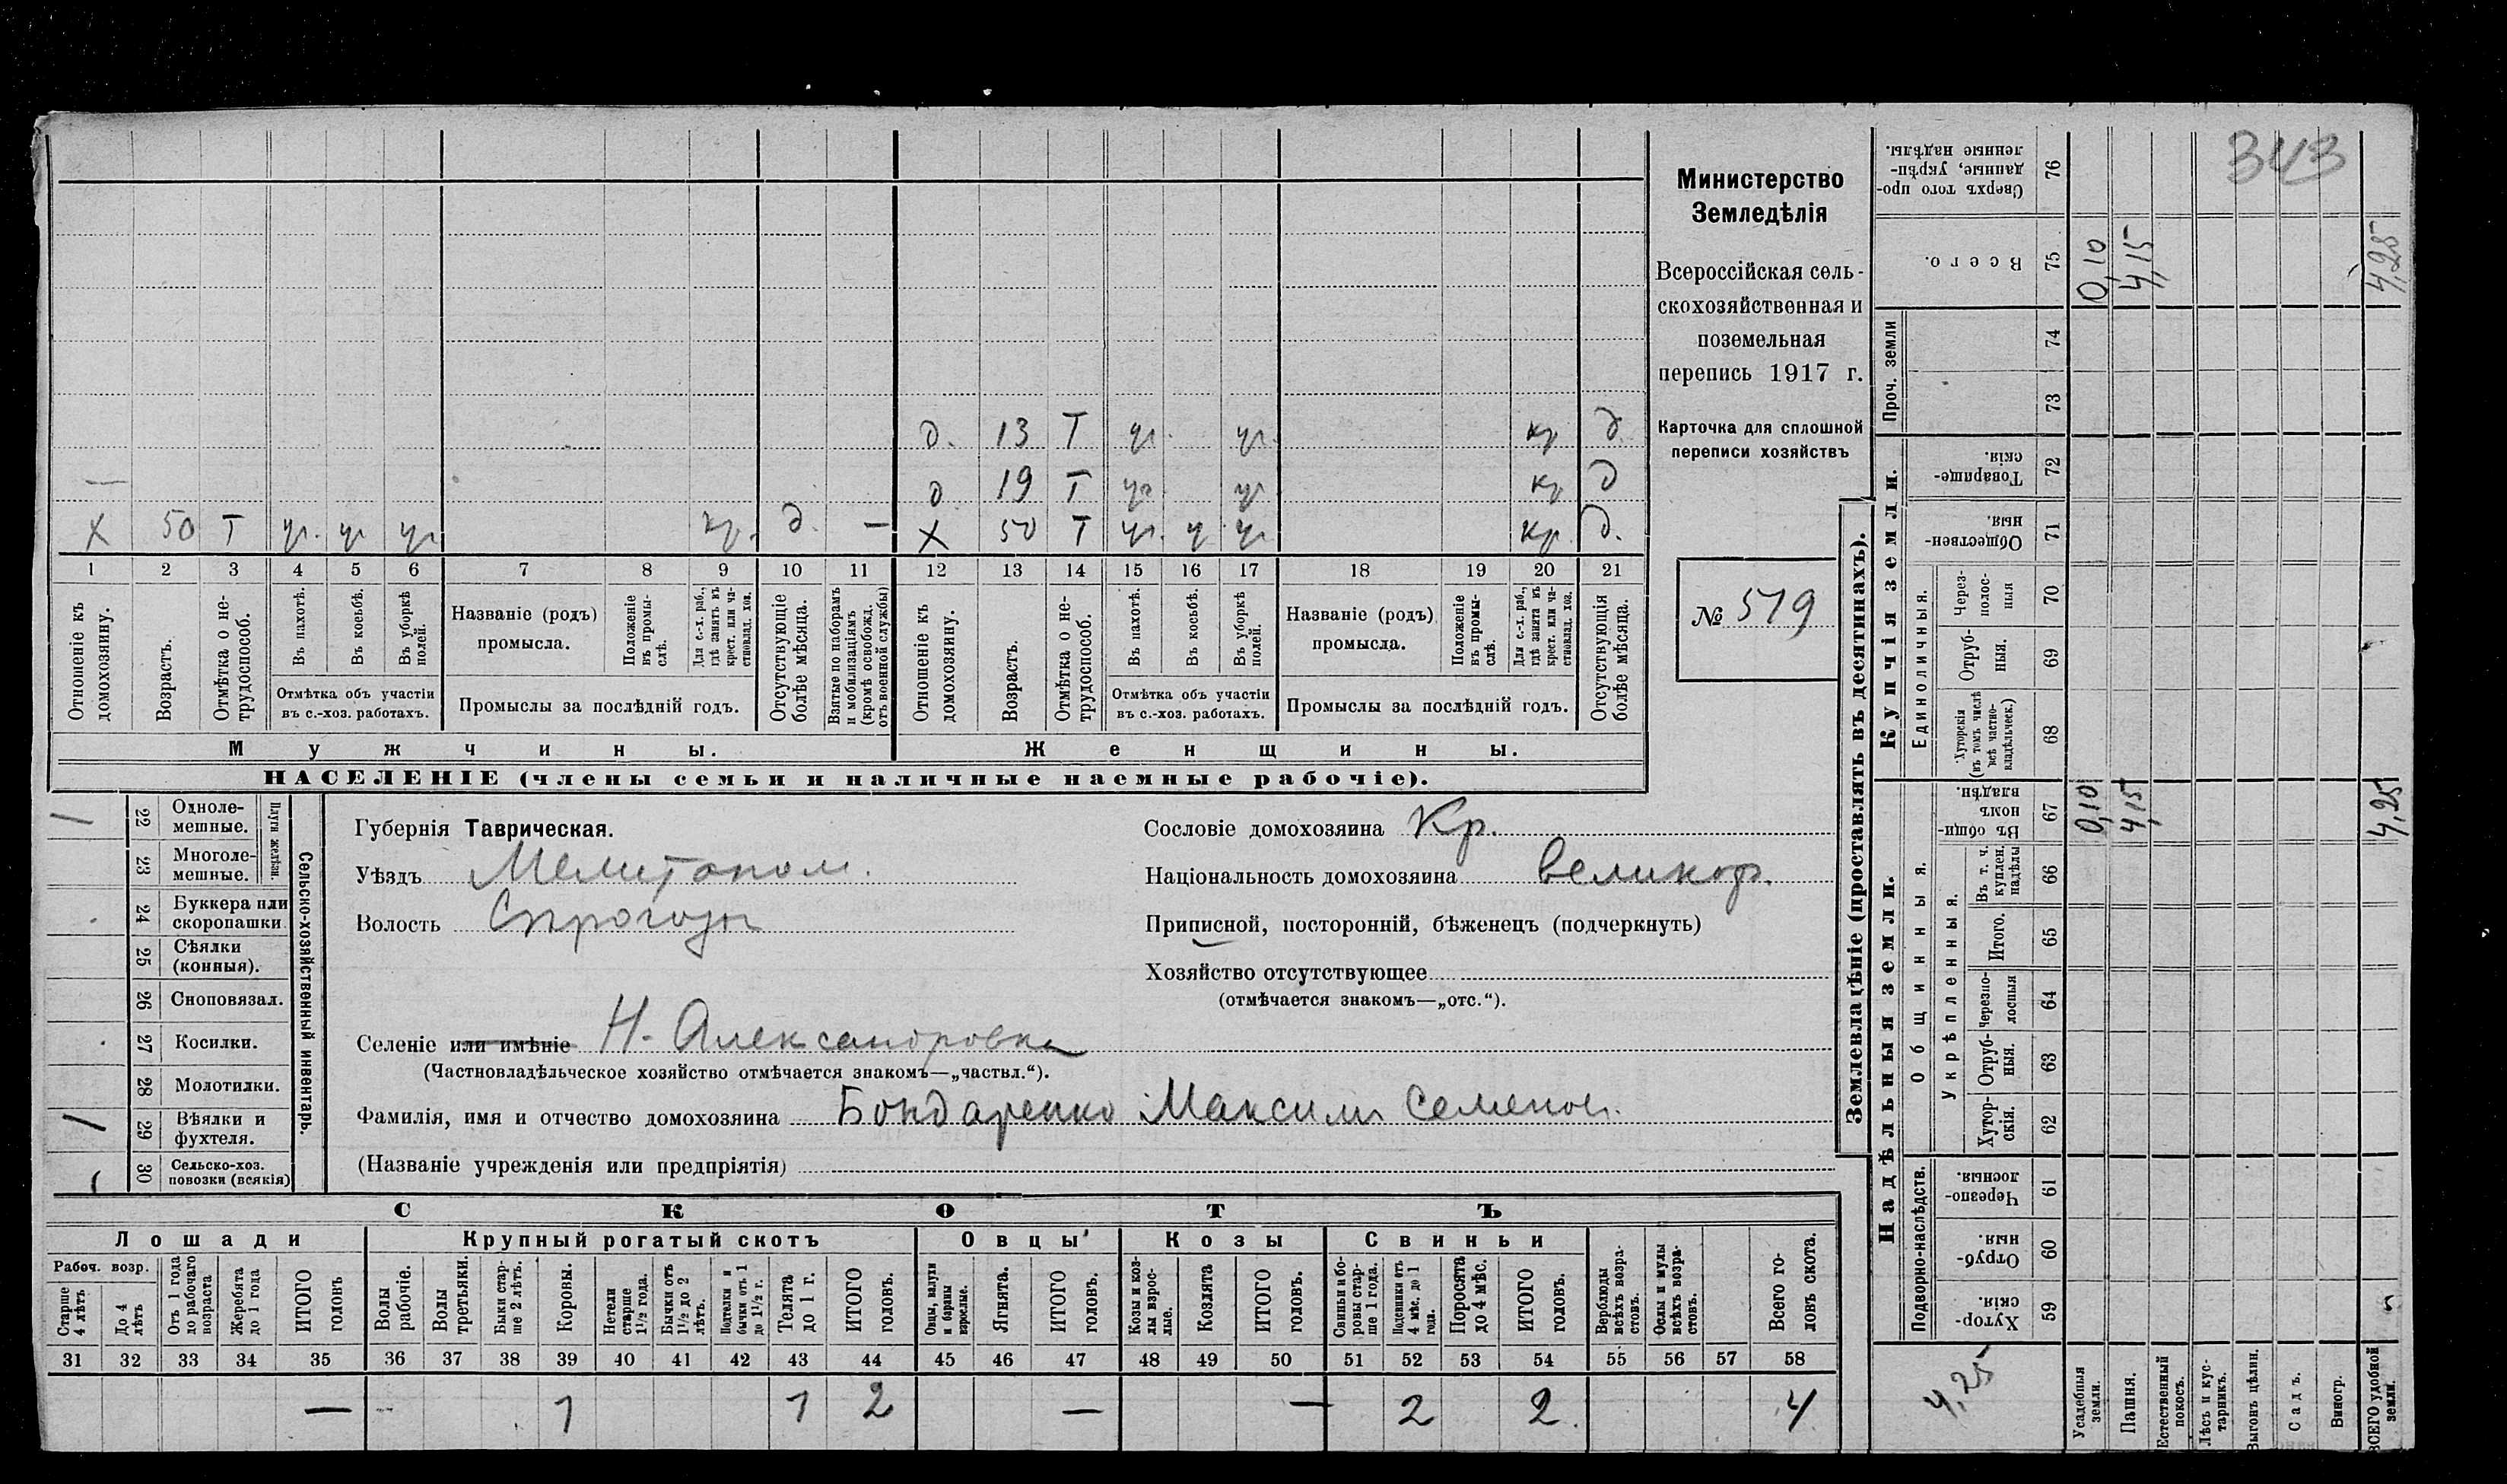 343
Министерство
Земледѣлія
Всероссійская сель-
скохозяйственная и
поземельная
перепись 1917 г.
Карточка для сплошной
переписи хозяйствъ
№ 519
д. 13 Т уч. уч. кр д.
— д 19 Т уч. уч кр д
X 50 Т уч. уч уч кр. д. — X 50 Т уч. уч уч кр. д.
1 2 3 4 5 6 7 8 9 10 11 12 13 14 15 16 17 18 19 20 21
Отношеніе къ домохозяину.
Возрастъ.
Отмѣтка о не-трудоспособ.
Въ пахотѣ.
Въ косьбѣ.
Въ уборкѣ полей.
Отмѣтка объ участіи
въ с.-хоз. работахъ.
Названіе (родъ)
промысла.
Положеніе въ промы-слѣ.
Для с.-х. раб., гдѣ занятъ въ крест. или ча-стновлад. хоз.
Промыслы за послѣдній годъ.
Отсутствующіе болѣе мѣсяца.
Взятые по наборамъ и мобилизаціямъ (кромѣ освобожд. отъ военной службы)
Отношеніе къ домохозяину.
Возрастъ.
Отмѣтка о не-трудоспособ.
Въ пахотѣ.
Въ косьбѣ.
Въ уборкѣ полей.
Отмѣтка объ участіи
въ с.-хоз. работахъ.
Названіе (родъ)
промысла.
Положеніе въ промы-слѣ.
Для с.-х. раб., гдѣ занята въ крест. или ча-стновлад. хоз.
Промыслы за послѣдній годъ.
Отсутствующія болѣе мѣсяца.
Мужчины.
Женщины.
НАСЕЛЕНІЕ (члены семьи и наличные наемные рабочіе).
22 Одноле-мешные.
23 Многоле-мешные.
Плуги желѣзн.
24 Буккера или скоропашки
25 Сѣялки (конныя).
26 Сноповязал.
27 Косилки.
28 Молотилки.
29 Вѣялки и фухтеля.
30 Сельско-хоз. повозки (всякія)
Сельско-хозяйственный инвентарь.
Губернія Таврическая.
Уѣздъ Мелитопол.
Волость Сирогозы
Селеніе или имѣніе Н. Александровка
(Частновладѣльческое хозяйство отмѣчается знакомъ—„частвл.“).
Фамилія, имя и отчество домохозяина Бондаренко Максим Семенов.
(Названіе учрежденія или предпріятія)
Сословіе домохозяина Кр.
Національность домохозяина великор.
Приписной, посторонній, бѣженецъ (подчеркнуть)
Хозяйство отсутствующее
(отмѣчается знакомъ—„отс.“).
СКОТЪ
Лошади Крупный рогатый скотъ Овцы Козы Свиньи
Рабоч. возр.
Старше 4 лѣтъ
До 4 лѣтъ
Отъ 1 года до рабочаго возраста
Жеребята до 1 года
ИТОГО головъ
Волы рабочіе.
Волы третьяки.
Быки стар-ше 2 лѣтъ.
Коровы.
Нетели старше 1½ года.
Бычки отъ 1½ до 2 лѣтъ.
Подтелки и бычки отъ 1 до 1½ г.
Телята до 1 г.
ИТОГО головъ.
Овцы, валухи и бараны взрослые.
Ягнята.
ИТОГО головъ.
Козы и коз-лы взрос-лые.
Козлята
ИТОГО головъ.
Свиньи и бо-ровы стар-ше 1 года.
Подсвинки отъ 4 мѣс. до 1 года.
Поросята до 4 мѣс.
ИТОГО головъ.
Верблюды всѣхъ возра-стовъ.
Ослы и мулы всѣхъ возра-стовъ.
Всего го-ловъ скота.
31 32 33 34 35 36 37 38 39 40 41 42 43 44 45 46 47 48 49 50 51 52 53 54 55 56 57 58
— - 1 1 2 — — 2 2 4
Землевладѣніе (проставлять въ десятинахъ).
Купчія земли.
Надѣльныя земли.
Сверхъ того про-данные, укрѣп-ленные надѣлы. 76
Всего. 75 0,10 4,15 4,25
Проч. земли
74
73
Товарище-скія. 72
Обществен-ныя. 71
Единоличныя.
Черезполос-ныя 70
Отруб-ныя. 69
Хуторскія (въ томъ числѣ всѣ частно-владѣльческ.) 68
Общинныя.
Въ общи-номъ владѣн. 67 0,10 4,15 4,25
Укрѣпленныя.
Въ т. ч. куплен. надѣлы 66
Итого. 65
Черезпо-лосныя 64
Отруб-ныя. 63
Хутор-скія. 62
Подворно-наслѣдств.
Черезпо-лосныя. 61
Отруб-ныя. 60
Хутор-скія. 59
4,25
Усадебныя земли.
Пашня.
Естественный покосъ.
Лѣсъ и кус-тарникъ.
Выгонъ цѣлин.
Садъ.
Виногр.
ВСЕГО удобной земли.